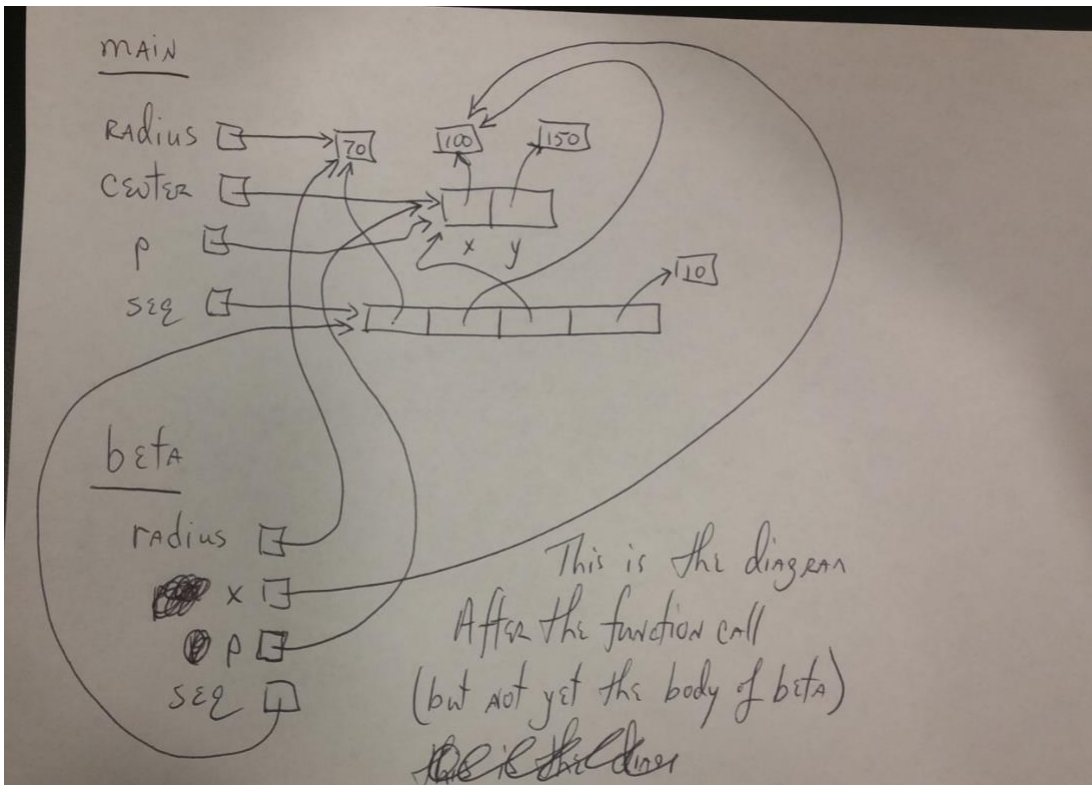 MAIN
RAdius
70
100
150
CENTER
x y
P
10
SEQ
betA
rAdius
x
p
SEQ
This is the diagram
After the function call
(but not yet the body of beta)